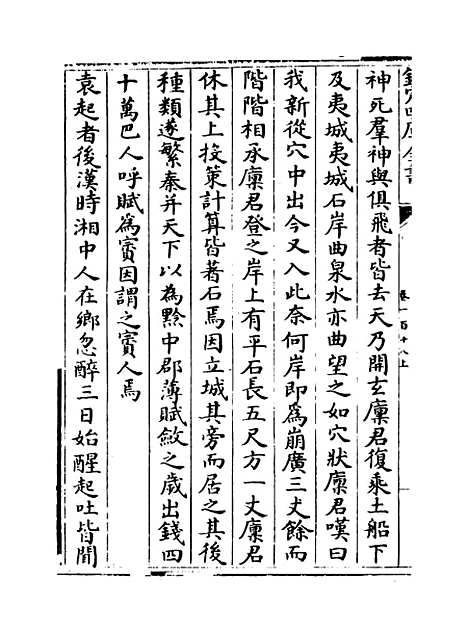 欽定四庫全書
卷一百十八上
神死羣神與俱飛者皆去天乃開玄廩君復乘土船下
及夷城夷城石岸曲泉水亦曲望之如穴狀廩君嘆曰
我新從穴中出今又入此奈何岸即為崩廣三丈餘而
階階相承廩君登之岸上有平石長五尺方一丈廩君
休其上投策計算皆著石焉因立城其旁而居之其後
種類遂繁秦并天下以為黔中郡薄賦斂之歲出錢四
十萬巴人呼賦為賨因謂之賨人焉
袁起者後漢時湘中人在鄉忽醉三日始醒起吐皆聞